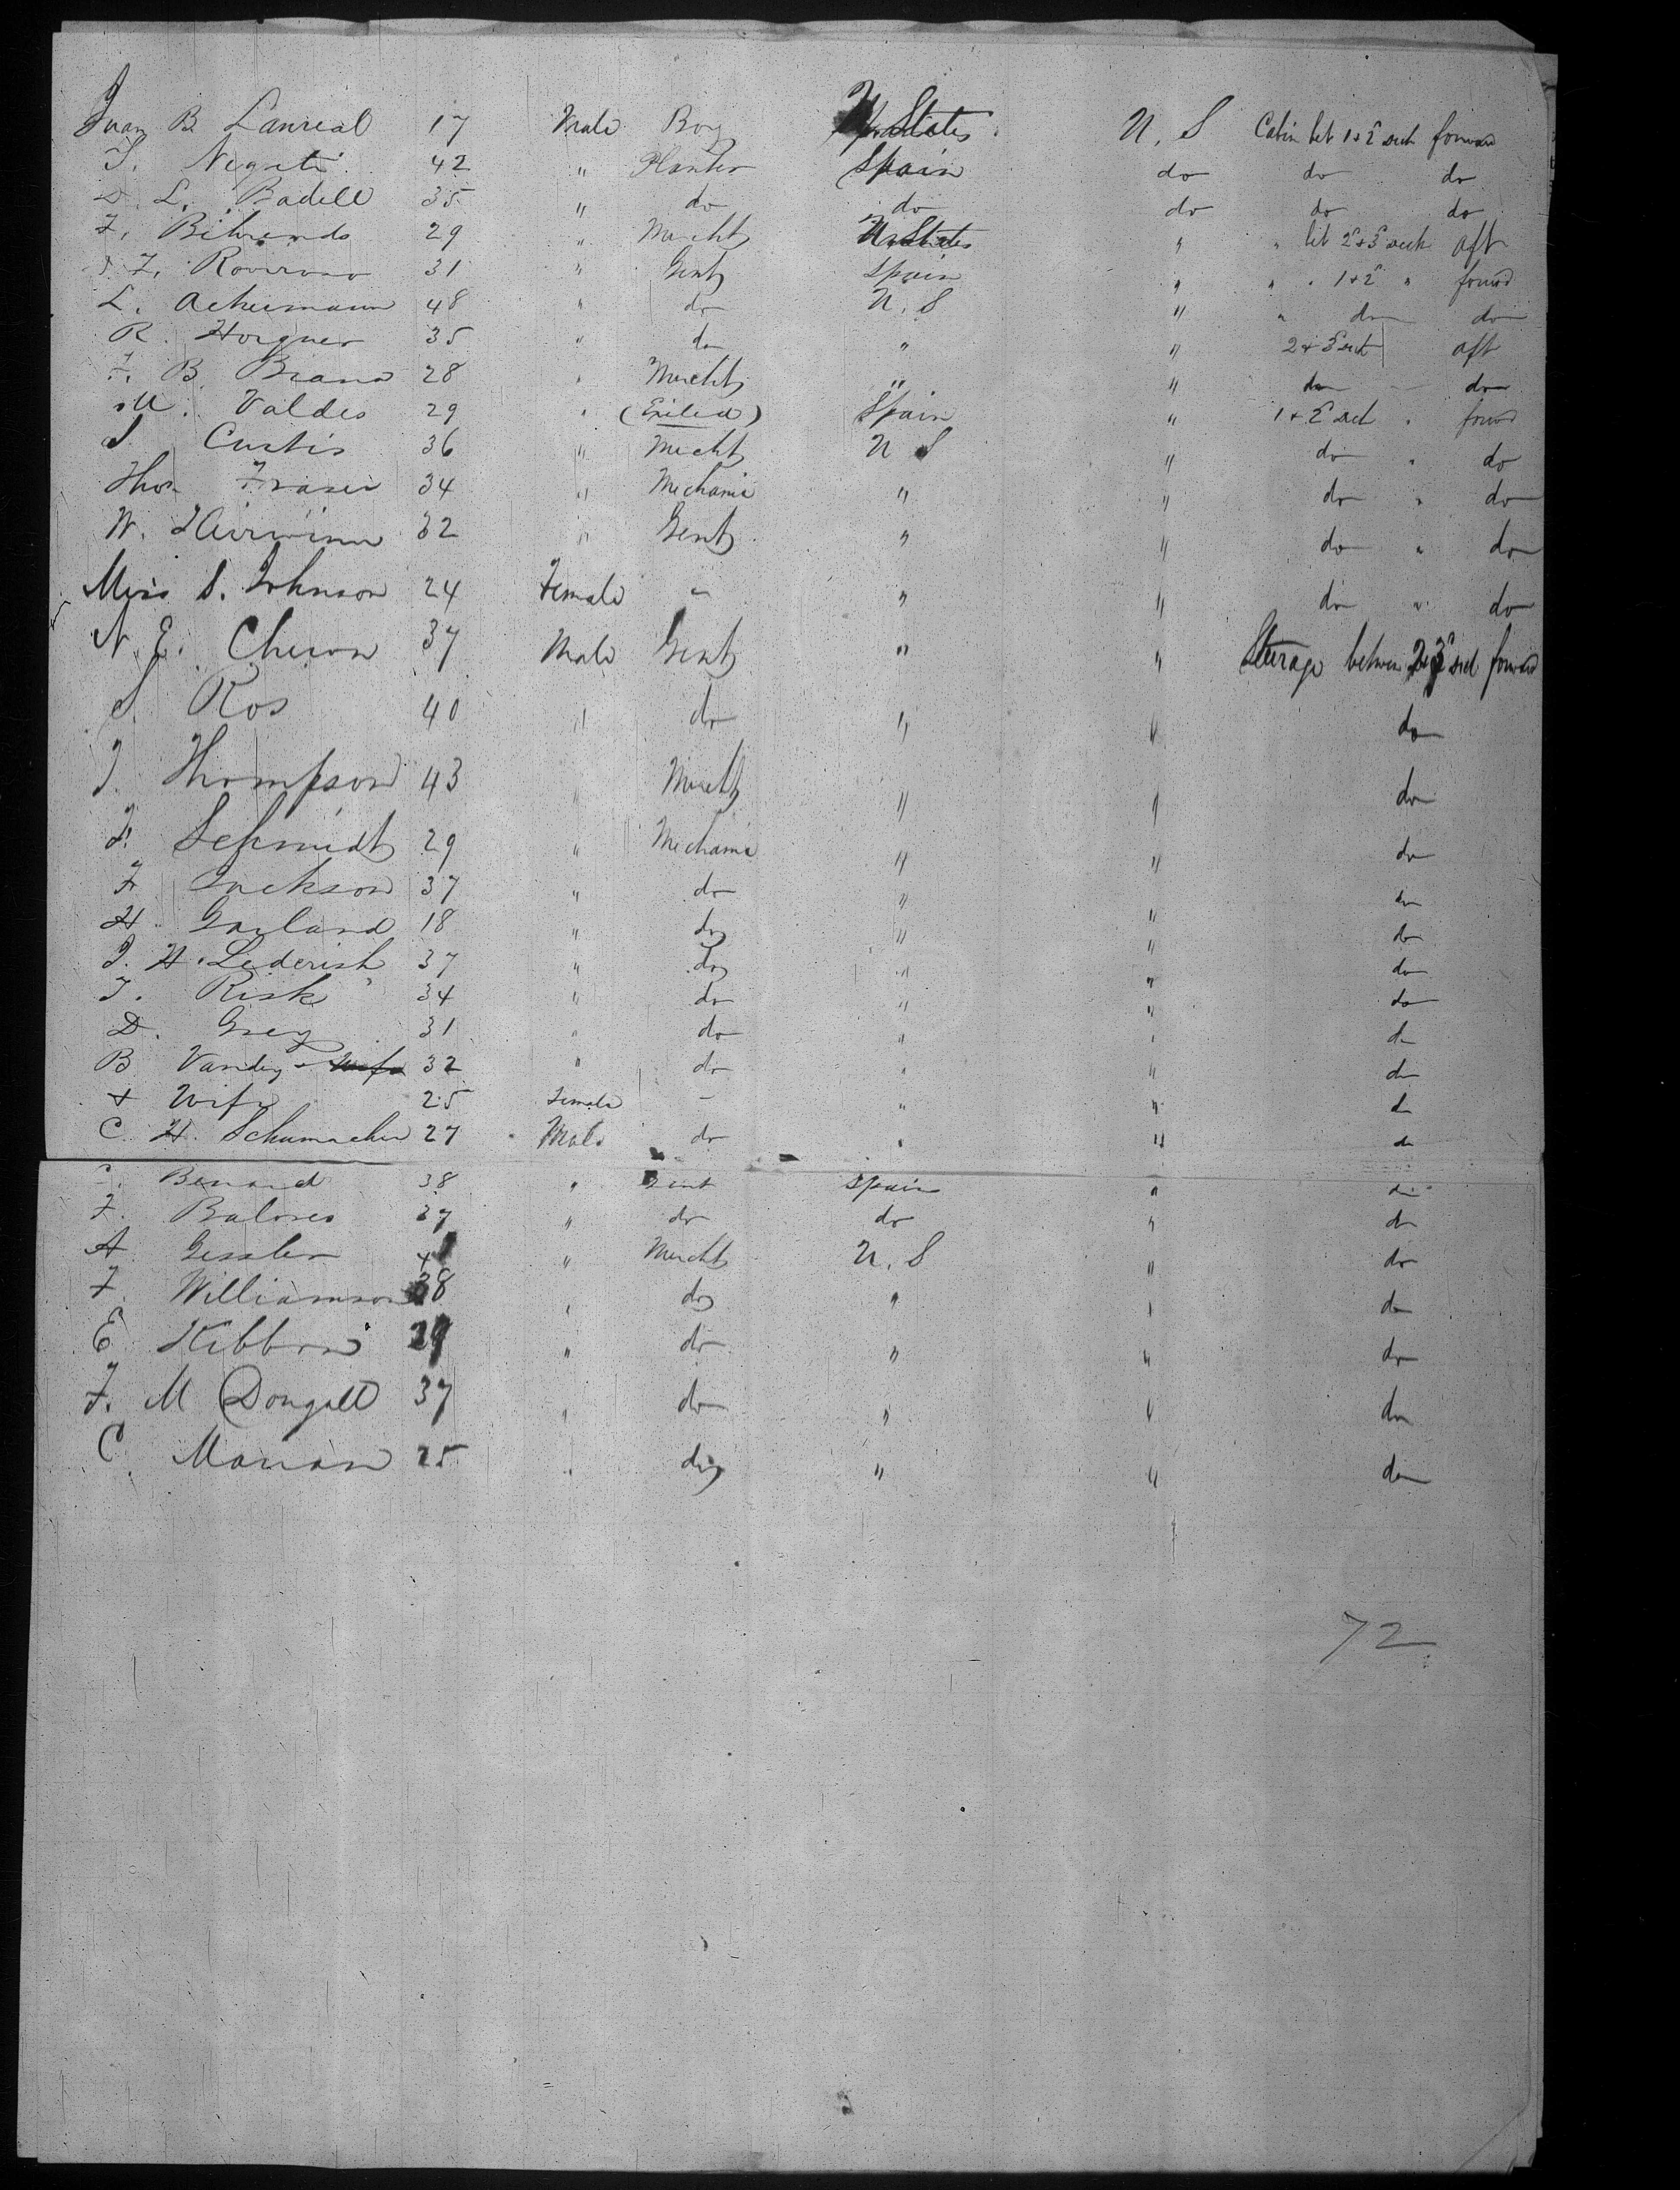 Juan B. Laureal 17 Male Boy U. States U. S Cabin bet 1 & 2 deck forward
T. Negrete 42 " Planter Spain do do do
D. L. Badell 35 " do do do do do
F. Behrends 29 " Mercht U. States " " bet 2 & 3 deck aft
F. Roverono 31 " Gent Spain " " " 1 & 2 " forwd
L. Achermann 48 " do U. S " " do do
R. Horgues 35 " do " " 2 & 3 deck aft
F. B. Brana 28 " Mercht " " do do
M. Valdes 29 " (Exiled) Spain " 1 & 2 deck " forwd
S Curtis 36 " Mercht U S " do " do
Thos Fraser 34 " Mechanic " " do " do
W. 32 " Gent " " do " do
Miss S. Johnson 24 Female " " " do " do
N. E. Cheron 37 Male Gent " " Steerage between 2 & 3 deck forward
S. Ros 40 " do " " do
J. Thompson 43 " Mercht " " do
F. Schmidt 29 " Mechanic " " do
F Jackson 37 " do " " do
H. Garland 18 " do " " do
J. H. Lederish 37 " do " " do
J. Risk 34 " do " " do
D. Grey 31 " do " " do
B Vandey & Wife 32 " do " " do
& Wife 25 Female - " " do
C. H. Schumacher 27 Male do " " do
Benard 38 " Gent Spain " do
F. Balores 37 " do do " do
A Gessler 4 " Mercht U. S " do
F. Williamson 38 " do " " do
E Kibbon 29 " do " " do
F. M Dougall 37 " do " " do
C. Marian 25 " do " " do
72